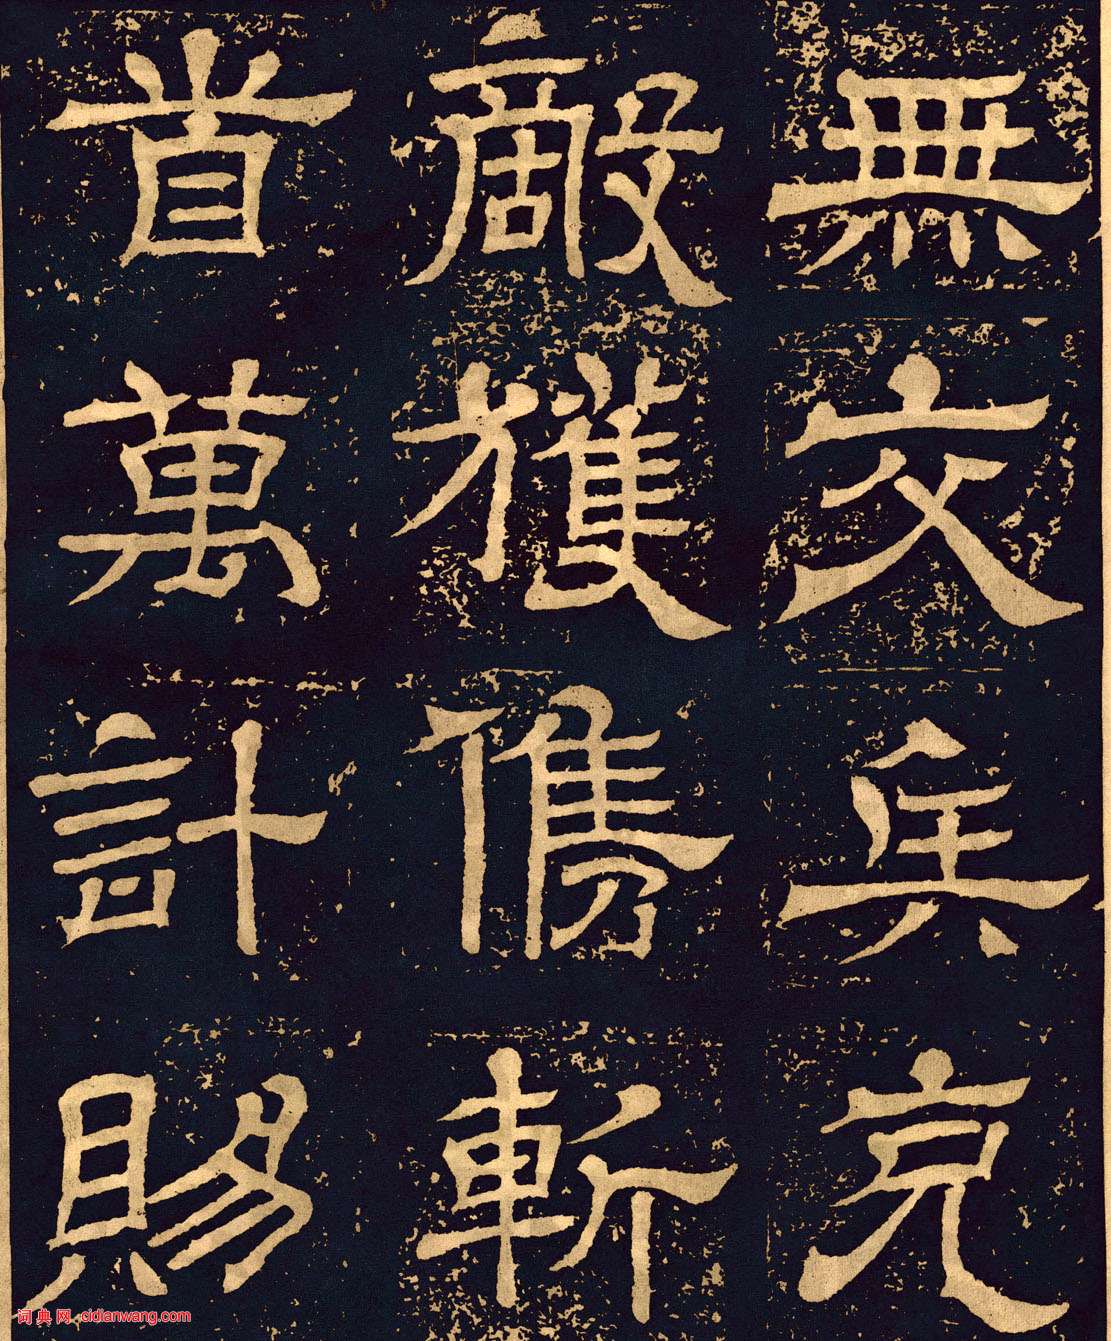 無交兵克
敵獲儁斬
首萬計賜
词典网 cidianwang.com